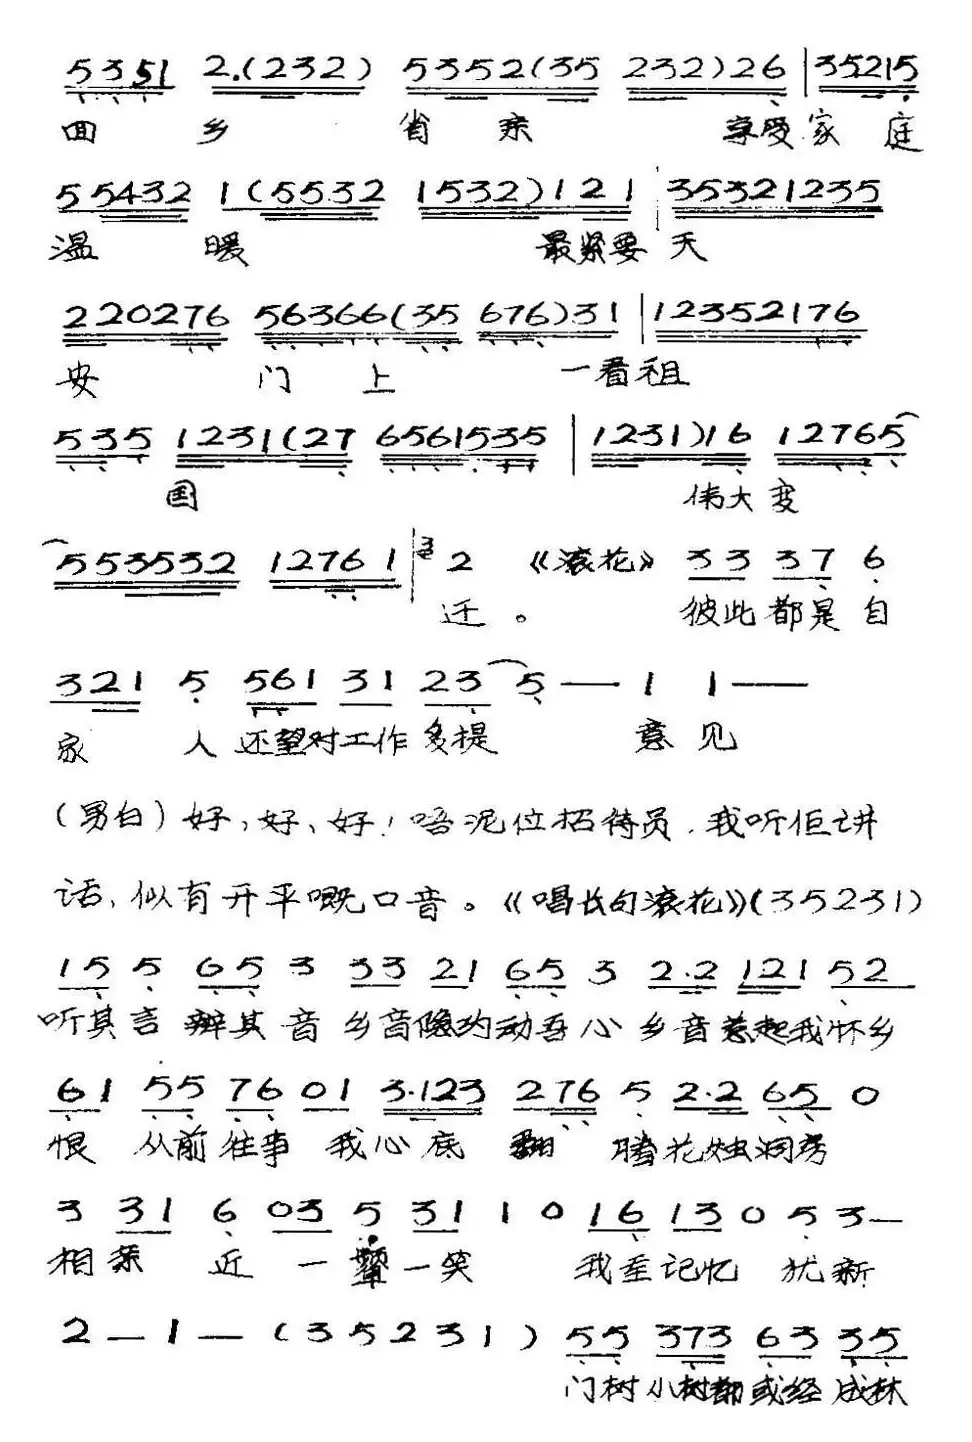 5351 2.(232) 5352(35 232)26 | 35215
回 乡 省 亲 享受家 庭
55432 1(5532 1532)121 35321235
温 暖 最紧要 天
220276 56366(35 676)31 | 12352176
安 门 上 一看祖
535 1231(27 6561535 | 1231)16 12765
国 伟大变
553532 12761 | 3 2 《滚花》 33 37 6
迁。 彼此都是自
321 5 561 31 23 5 — 1 1 —
家 人 还望对工作多提 意见
(男白)好,好、好!唔泥位招待员.我听佢讲
话、似有开平嘅口音。《唱长句滚花》(35231)
15 5 65 3 33 21 65 3 2.2 121 52
听其言 辨其 音 乡音隐约动吾心 乡音惹起我怀乡
61 55 76 01 3.123 276 5 2.2 65 0
恨 从前往事 我心底 翻 腾花烛洞房
3 31 6 03 5 31 1 0 16 13 0 5 3—
相亲 近 一颦一笑 我至记忆 犹新
2 — 1 — (35231) 55 373 63 35
门树小树都或经成林